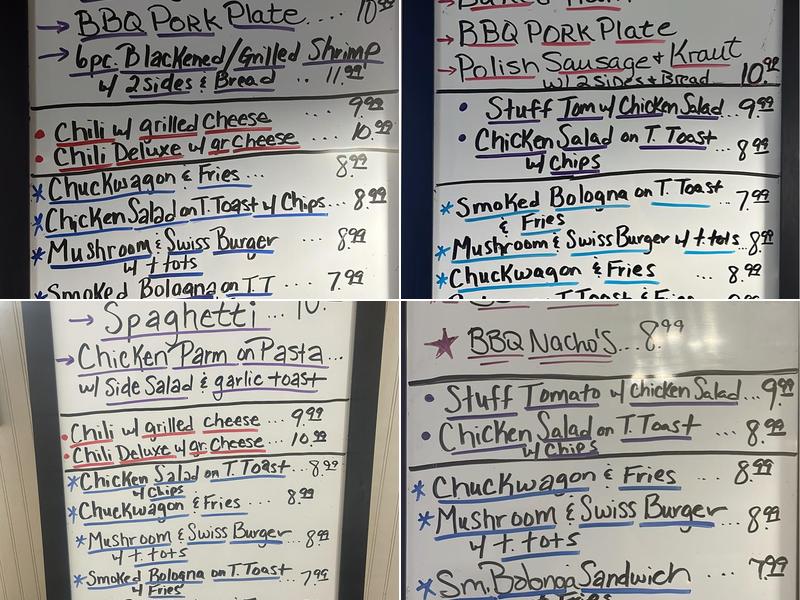 → BBQ Pork Plate .... 10
→ 6pc. Blackened/Grilled Shrimp
w/ 2 sides & Bread ... 11.99
9.99
• Chili w/ grilled Cheese ....
• Chili Deluxe w/ gr Cheese ... 10.99
* Chuckwagon & Fries ... 8.99
* Chicken Salad on T. Toast w/ Chips ... 8.99
* Mushroom & Swiss Burger ... 8.99
w/ t. tots
* Smoked Bologna on T.T ... 7.99
→ BBQ Pork Plate
→ Polish Sausage + Kraut
w/ 2 sides & Bread 10.99
• Stuff Tom w/ Chicken Salad .. 9.99
• Chicken Salad on T. Toast ... 8.99
w/ Chips
* Smoked Bologna on T. Toast ... 7.99
& Fries
* Mushroom & Swiss Burger w/ t. tots .. 8.99
* Chuckwagon & Fries ... 8.99
→ Spaghetti ... 10.
→ Chicken Parm on Pasta ...
w/ Side Salad & garlic toast
• Chili w/ grilled cheese ... 9.99
• Chili Deluxe w/ gr. Cheese ... 10.99
* Chicken Salad on T. Toast ... 8.99
w/ Chips
* Chuckwagon & Fries ... 8.99
* Mushroom & Swiss Burger ... 8.99
w/ t. tots
* Smoked Bologna on T. Toast ... 7.99
w/ Fries
★ BBQ Nacho's ... 8.99
• Stuff Tomato w/ Chicken Salad ... 9.99
• Chicken Salad on T. Toast ... 8.99
w/ Chips
* Chuckwagon & Fries ... 8.99
* Mushroom & Swiss Burger ... 8.99
w/ t. tots
* Sm. Bolonga Sandwich ... 7.99